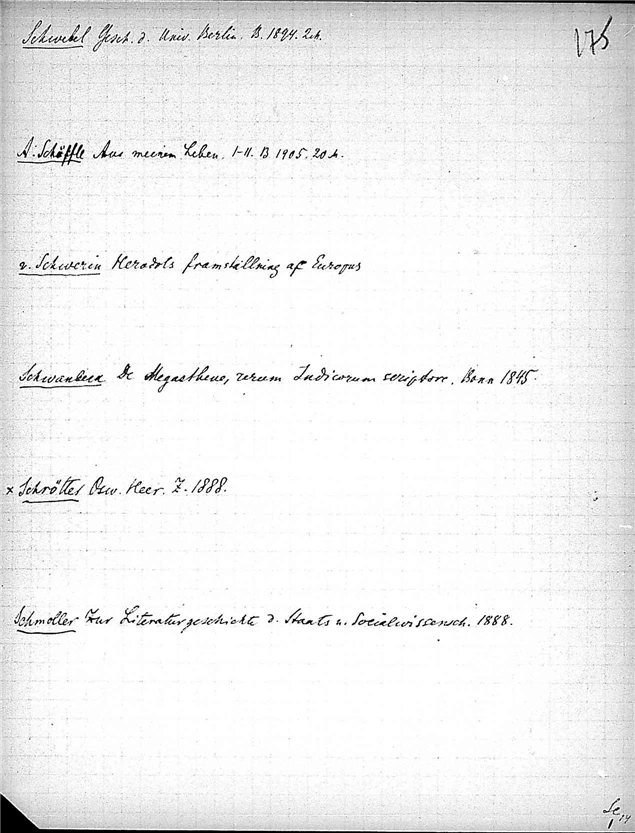 Schwebel Gesch. d. Univ. Berlin. B. 1894. 2 ch.
175
A. Schöffle Aus meinem Leben. I-II. B 1905. 20 h.
v. Schwerin Herodots framställning af Europas
Schwanbeck De Megasthene, rerum Indicarum scriptore. Bonn 1845.
x Schröter Osw. Heer. Z. 1888.
Schmoller Zur Literaturgeschichte d. Staats u. Socialwissensch. 1888.